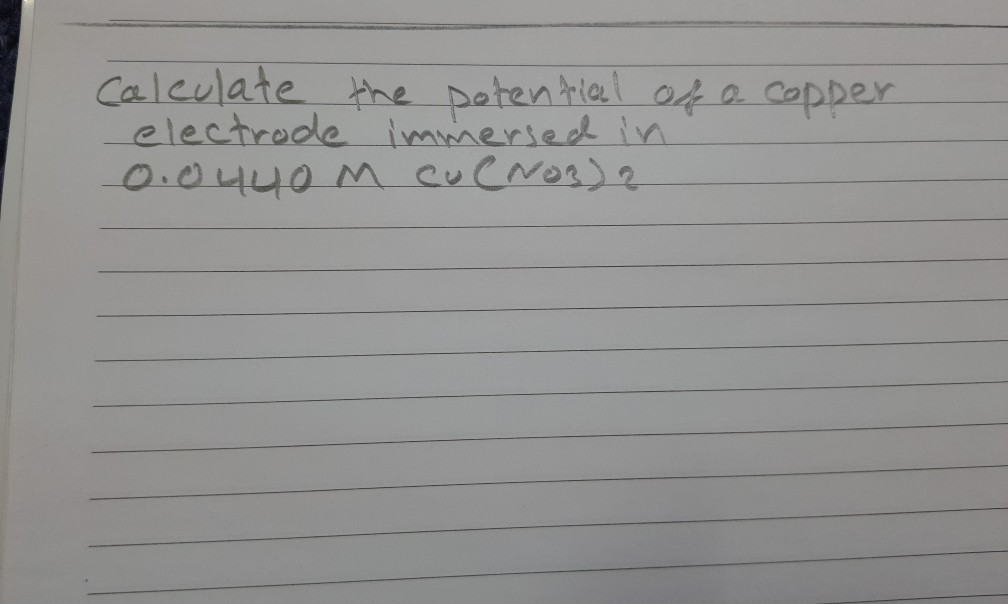 Calculate the potential of a copper
electrode immersed in
0.0440 M Cu(NO3)2